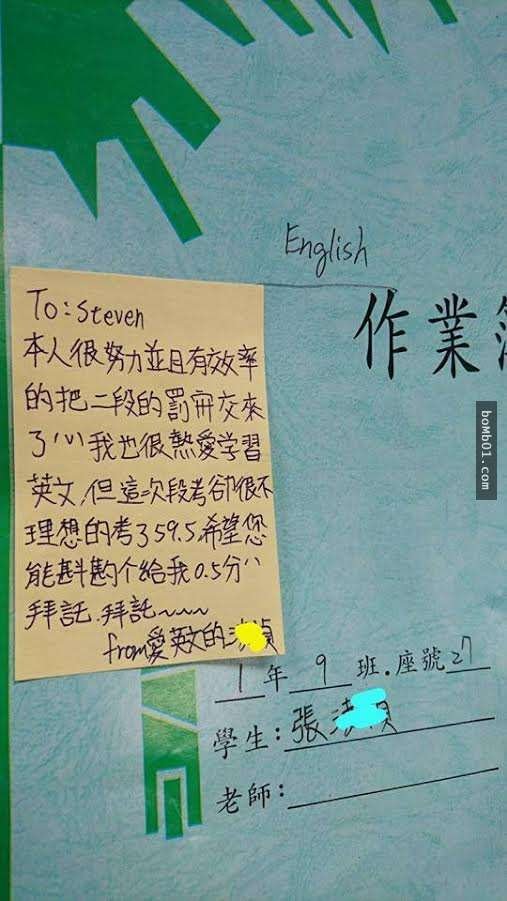 English
作業
To: Steven
本人很努力並且有效率
的把二段的罰冊交來
了 我也很熱愛学習
英文,但這次段考卻很不
理想的考了59.5,希望您
能斟酌个給我0.5分
拜託.拜託~~~
from愛英文的
1年9班.座號27
學生:張
老師:
boMb01.com